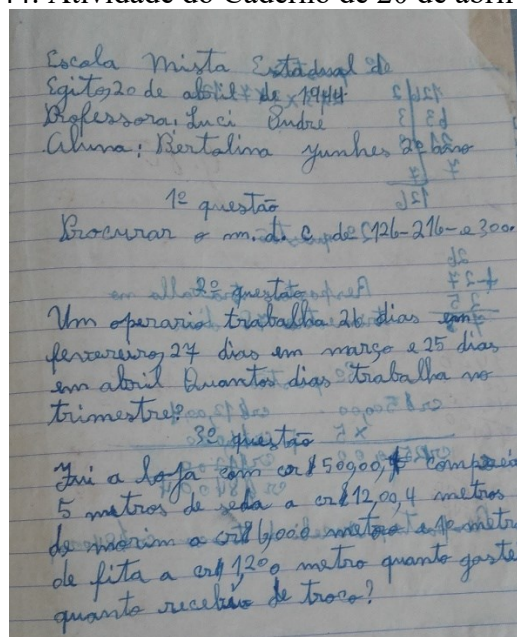 44. Atividade do Caderno de 20 de abril
Escola Mista Estadual de
Egito, 20 de abril de 1944
Professora: Luci André
Aluna: Bertolina Yunhes 2º ano
1ª questão
Procurar o m. d. c. de 126-216- e 300.
2ª questão
Um operario trabalha 26 dias em
fevereiro, 27 dias em março e 25 dias
em abril Quantos dias trabalha no
trimestre?
3ª questão
Fui a loja com cr$ 50,00, comprei
5 metros de seda a cr$ 12,00, 4 metros
de morim a cr$ 6,00 o metro e 10 metr
de fita a cr$ 1,20 o metro quanto gaste
quanto recebi de troco?